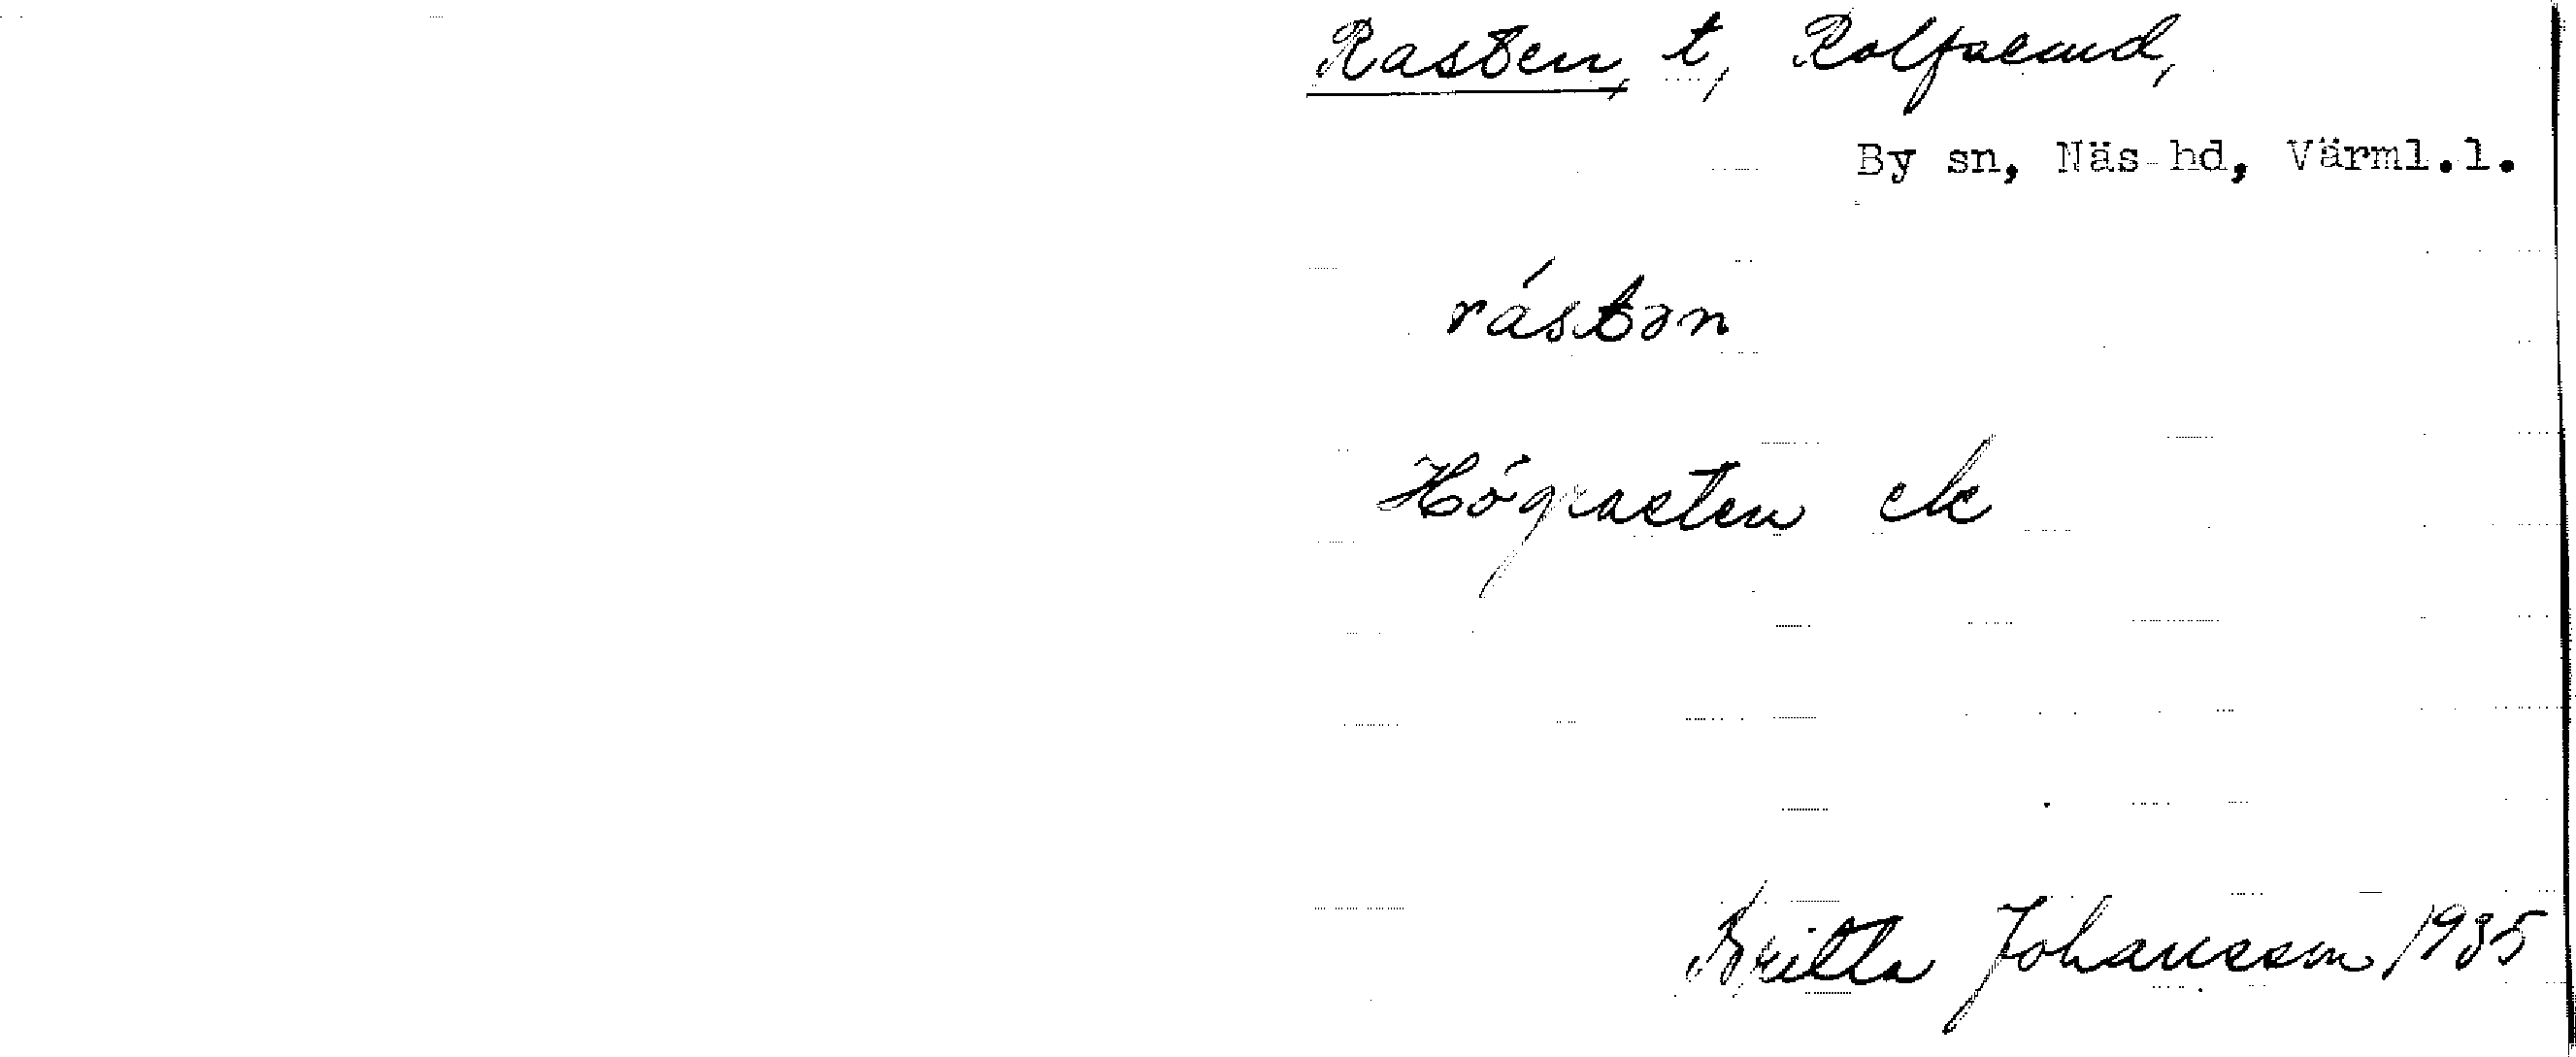 Rasten, t, Rolfserud,
By sn, Näs hd, Värml.l.
rástən
Högrasten ek
Britta Johansson 1935